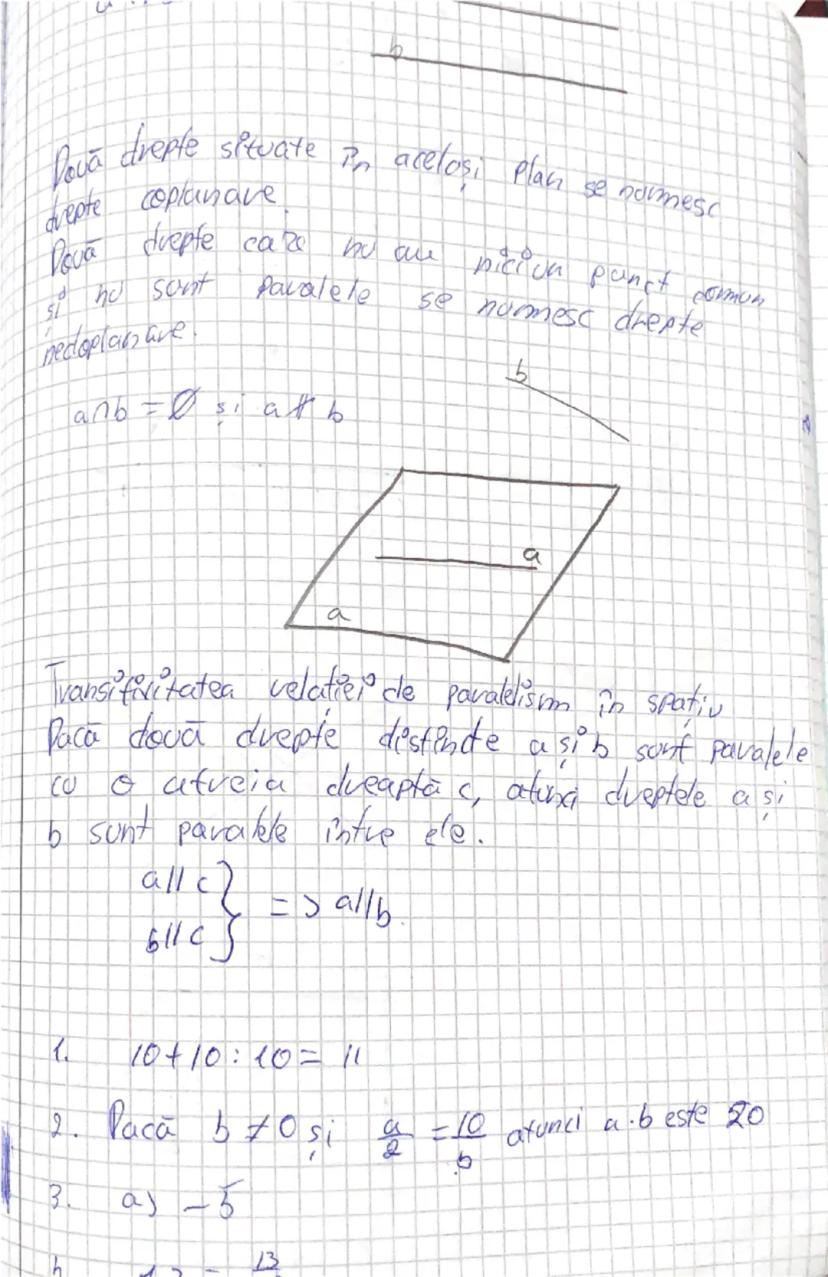 b
Două drepte situate în același plan se numesc
drepte coplanare.
Două drepte care nu au niciun punct comun
și nu sunt paralele se numesc drepte
necoplanare.
b
a∩b = Ø și a ∦ b
a
a
Transitivitatea relației de paralelism în spațiu
Dacă două drepte distincte a și b sunt paralele
cu o atreia dreaptă c, atunci dreptele a și
b sunt paralele între ele.
a||c
b||c } => a||b.
1. 10+10:10= 11
2. Dacă b ≠ 0 și a/2 = 10/b atunci a·b este 20
3. a) -5
13